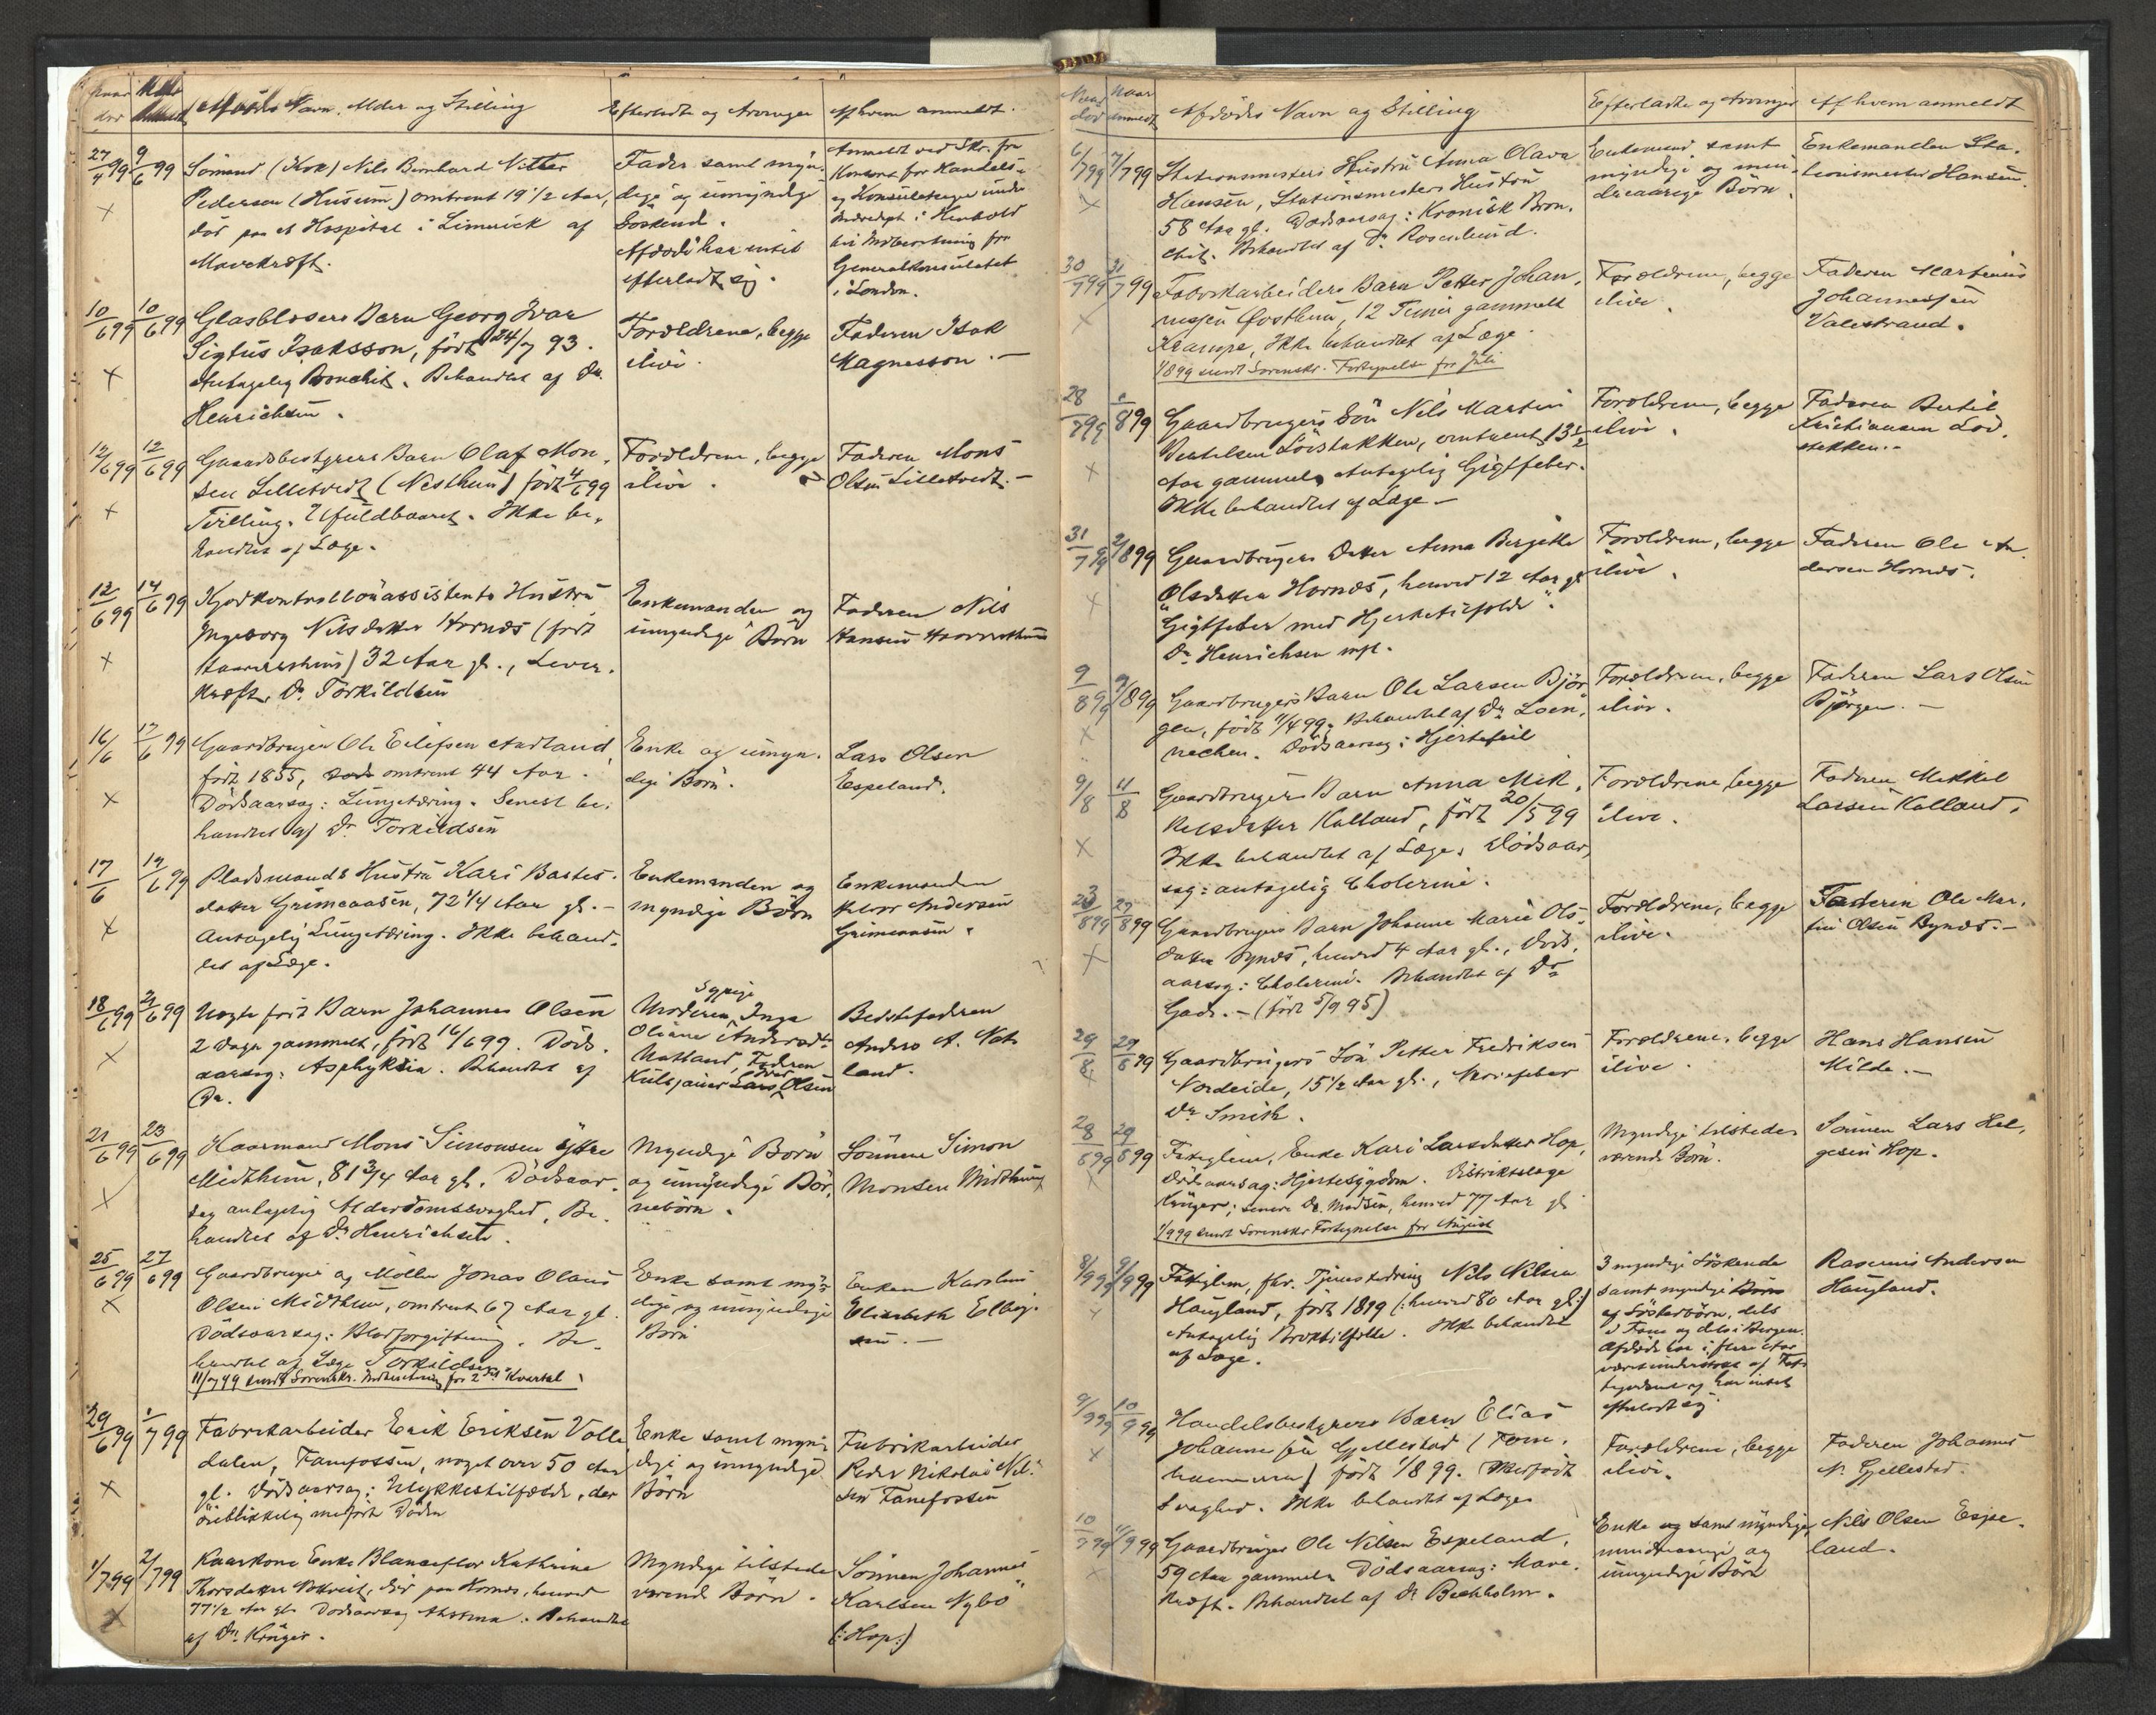 Afdødes Navn, Alder og Stilling
Efterladte og Arvinger
Af hvem anmeldt.
27/4 99 9/6 99
Sømand (Kok) Nils Bernhard
Pedersen (Husum) omtrent 19 1/2 Aar,
død paa et Hospital i Limerick af
Mavekræft.
Fader samt myn-
dige og umyndige
Søskend.
Afdøde har intet
efterladt sig.
Anmeldt ved Skr. fra
Kontoret for Handels-
og Konsulatsager under
i Henhold
til Indberetning fra
Generalkonsulatet
i London.
10/6 99 10/6 99
Glasblæsers Barn Georg Ivar
Sigtus Isaksson, født 24/7 93.
Antagelig Bronchit. Behandlet af Dr.
Henrichsen.
Forældrene, begge
ilive.
Faderen Isak
Magnesson.—
12/6 99 12/6 99
Gaardsbestyrers Barn Olaf Mon-
sen Lilletvedt (Nesthun) født 4/6 99
Tvilling. Ufuldbaaret. Ikke be-
handlet af Læge.
Forældrene, begge
ilive.
Faderen Mons
Olsen Lilletvedt.—
12/6 99 14/6 99
Kjødkontrollørassistents Hustru
Ingeborg Nilsdatter Hornæs (født
) 32 Aar gl., Lever-
kræft, Dr. Torkildsen
Enkemanden og
umyndige Børn
Faderen Nils
Hansen
16/6 17/6 99
Gaardbruger Ole Eilifsen Aadland,
født 1855, omtrent 44 Aar.
Dødsaarsag: Lungetæring. Senest be-
handlet af Dr Torkildsen
Enke og umyn-
dige Børn.
Lars Olsen
Espeland.
17/6 19/6 99
Pladsmands Hustru Kari Bastes-
datter Grimeaasen, 72 1/4 Aar gl.—
Antagelig Lungetæring. Ikke behand-
let af Læge.
Enkemanden og
myndige Børn
Enkemanden
Andersen
Grimeaasen.
18/6 99 21/6 99
Uægte født Barn Johannes Olsen
2 Dage gammelt, født 16/6 99. Døds-
aarsag: Asphyksia. Behandlet af
Dr.
Sypige
Moderen Inga
Oliane Andersdtr
Natland, Faderen
Kulsjauer Lars Olsen
Bedstefaderen
Anders A. Nat-
land.
21/6 99 23/6 99
Kaarmand Mons Simonsen Ytre
Midthun, 81 3/4 Aar gl. Dødsaar-
sag antagelig Alderdomssvaghed. Be-
handlet af Dr Henrichsen.
Myndige Børn
og umyndige Bør-
nebørn.
Sønnen Simon
Monsen Midthun
25/6 99 27/6 99
Gaardbruger og Møller Jonas Olaus
Olsen Midthun, omtrent 67 Aar gl.
Dødsaarsag: Blodforgiftning. Be-
handlet af Læge Torkildsen
11/7 99 sendt Sorenskr. Indberetning for 2det Kvartal.
Enke samt myn-
dige og umyndige
Børn
Enken Karoline
Elisabeth
29/6 99 1/7 99
Fabrikarbeider Erik Eriksen Volle
dalen, Fanefossen, noget over 50 Aar
gl. Dødsaarsag: Ulykkestilfælde, der
øieblikkelig medførte Døden
Enke samt myn-
dige og umyndige
Børn
Fabrikarbeider
Peder Nikolai Nil-
sen Fanefossen
1/7 99 2/7 99
Kaarkone Enke Blanseflor Kathrine
Thorsdatter, død paa Hornæs, henved
77 1/2 Aar gl. Dødsaarsag Asthma. Behandlet
af Dr. Krüger.
Myndige tilstede
værende Børn.
Sønnen Johannes
Karlsen Nybø
(:Hop:)
Naar død Naar anmeldt
Afdødes Navn og Stilling
Efterladte og Arvinger
Af hvem anmeldt
6/7 99 7/7 99
Stationsmesters Hustru Anna Olava
Hansen, Stationsmesters Hustru
58 Aar gl. Dødsaarsag: Kronisk Bron-
chit. Behandlet af Dr. Rosenlund.
Enkemand samt
myndige og min-
dreaarige Børn.
Enkemanden Sta-
tionsmester Hansen.
30/7 99 31/7 99
Fabrikarbeiders Barn Petter Johan-
nesen Øvsthun, 12 Timer gammelt
Krampe, Ikke behandlet af Læge.
1/8 99 sendt Sorenskr. Fortegnelse for Juli
Forældrene, begge
ilive.
Faderen Martinus
Johannessen
Valestrand.
28/7 99 1/8 99
Gaardbrugers Søn Nils Martin
Bertelsen Løvstakken, omtrent 13 1/2
Aar gammel, Antagelig Gigtfeber.
Ikke behandlet af Læge.—
Forældrene, begge
ilive.
Faderen Bertil
Kristiansen Løv-
stakken.—
31/7 99 2/8 99
Gaardbrugers Datter Anna Bergitte
Olsdatter Hornæs, henved 12 Aar gl.
"Gigtfeber med Hjertetilfælde".
Dr. Henrichsen
Forældrene, begge
ilive.
Faderen Ole An-
dersen Hornæs.
9/8 99 9/8 99
Gaardbrugers Barn Ole Larsen Bjør-
gen, født 11/4 99. Behandlet af Dr. Loen-
nechen. Dødsaarsag: Hjertefeil
Forældrene, begge
ilive.
Faderen Lars Olsen
Bjørgen.—
9/8 11/8
Gaardbrugers Barn Anna Mik-
kelsdatter Kalland, født 20/5 99
Ikke behandlet af Læge. Dødsaar-
sag: antagelig Cholerine.
Forældrene, begge
ilive.
Faderen Mikkel
Larsen Kalland.
23/8 99 27/8 99
Gaardbrugers Barn Johanne Marie Ols-
datter Bynæs, henved 4 Aar gl., Døds-
aarsag: Cholerine. Behandlet af Dr
Gade.— (født 5/9 95)
Forældrene, begge
ilive.
Faderen Ole Mar-
tin Olsen Bynæs.—
29/8 29/8 99
Gaardbrugers Søn Petter Fredriksen
Nordeide, 15 1/2 Aar gl., Nervefeber
Dr Smith.
Forældrene, begge
ilive.
Hans Hansen
Milde.—
28/8 99 29/8 99
Fattiglem, Enke Kari Larsdatter Hop,
Dødsaarsag: Hjertesygdom. Distriktslæge
Krüger; senere Dr. Madsen, henved 77 Aar gl
1/9 99 sendt Sorenskr Fortegnelse for August
Myndige tilstede
værende Børn.
Sønnen Lars Hel-
gesen Hop.
8/9 99 9/9 99
Fattiglem, fhv. Tjenestedreng Nils Nilsen
Haugland, født 1819 (:henved 80 Aar gl:)
Antagelig Broktilfælde. Ikke behandlet
af Læge.
3 myndige Søskende
samt myndige Børn
af Søskendbørn, dels
i Fane og dels i Bergen.
Afdøde har i flere Aar
været understøttet af Fat-
og har intet
efterladt sig
Rasmus Andersen
Haugland.
9/9 99 10/9 99
Handelsbestyrers Barn Elias
Johannessen Gjellestad (Fane-
hammeren) født 1/8 99. Medfødt
Svaghed. Ikke behandlet af Læge
Forældrene, begge
ilive.
Faderen Johannes
N. Gjellestad.
10/9 99 11/9 99
Gaardbruger Ole Nilsen Espeland,
59 Aar gammel. Dødsaarsag: Mave-
kræft. Behandlet af Dr Buchholm.
Enke og samt myndige,
mindreaarige og
umyndige Børn
Nils Olsen Espe-
land.